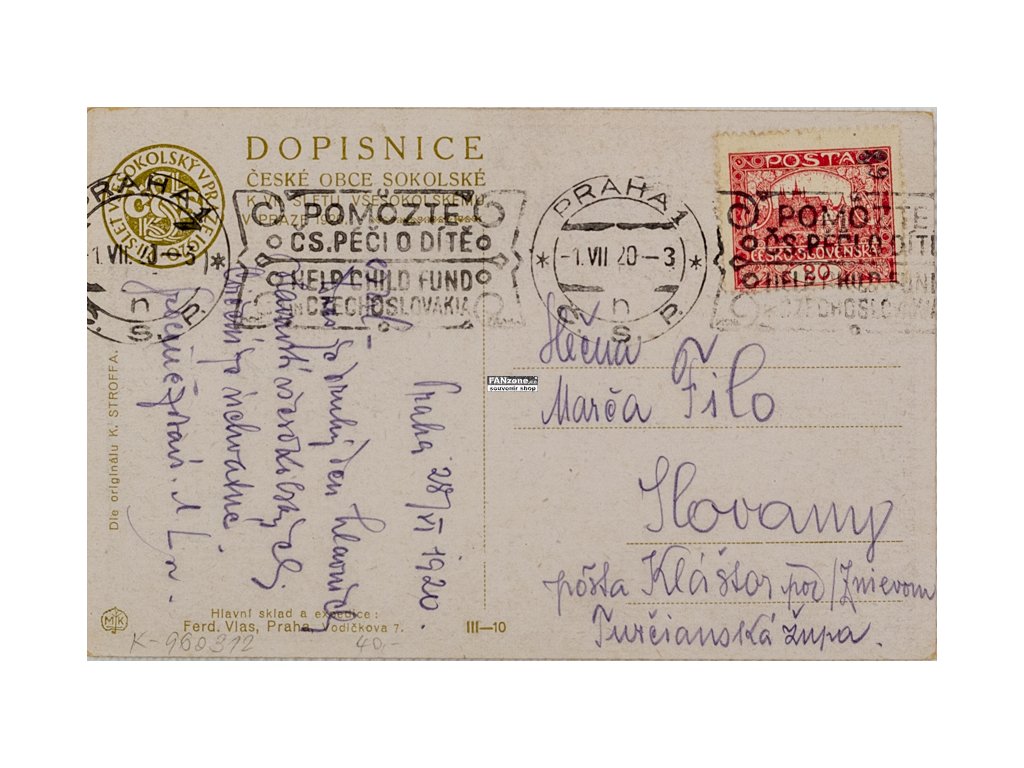 DOPISNICE
ČESKÉ OBCE SOKOLSKÉ
K VII. SLETU VŠESOKOLSKÉMU
V PRAZE
VII. SLET VŠESOKOLSKÝ V PRAZE
PRAHA 1
-1.VII 20-3
n
S. P.
POMOZTE
ČS. PÉČI O DÍTĚ
HELP CHILD FUND
IN CZECHOSLOVAKIA
PRAHA 1
-1.VII 20-3
n
S. P.
POMOZTE
ČS. PÉČI O DÍTĚ
HELP CHILD FUND
CZECHOSLOVAKIA
POŠTA
ČESKO-SLOVENSKÁ
20
FANzone.cz
souvenir shop
Praha 28/VI 1920.
Dnes je druhý den hlavních
slavností všesokolských.
úchvatné
Slečna
Marča Filo
Slovany
pôšta Kláštor pod/Znievom
Turčianská župa.
Dle originálu K. STROFFA.
MK
Hlavní sklad a expedice:
Ferd. Vlas, Praha, Vodičkova 7.
III—10
K-960312
40,-